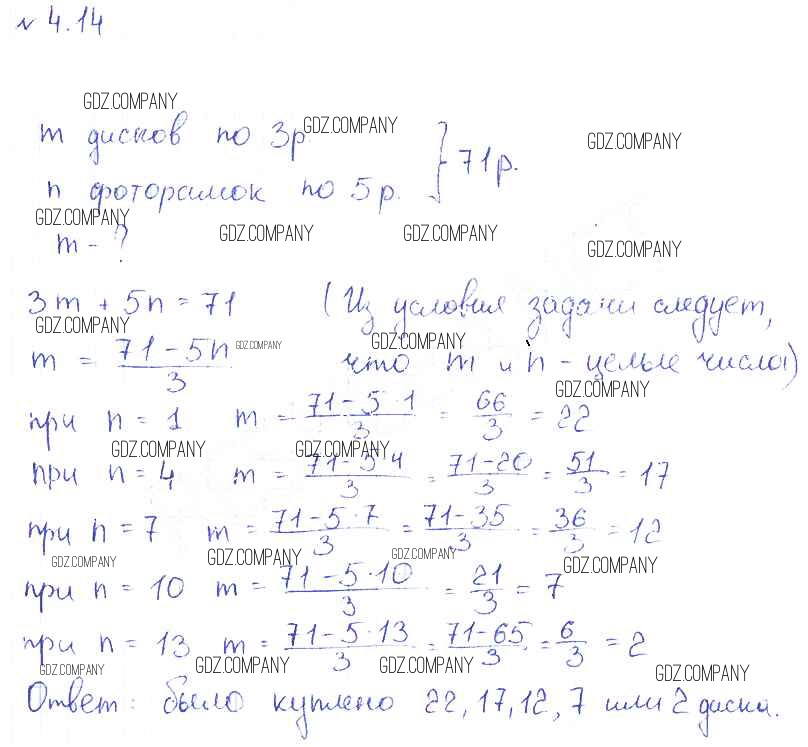 № 4.14
GDZ.COMPANY
m дисков по 3р. GDZ.COMPANY
} 71р. GDZ.COMPANY
n фоторамок по 5р.
GDZ.COMPANY
m - ? GDZ.COMPANY GDZ.COMPANY GDZ.COMPANY
3m + 5n = 71 (Из условия задачи следует,
GDZ.COMPANY GDZ.COMPANY GDZ.COMPANY
m = (71-5n)/3 что m и n - целые числа)
GDZ.COMPANY
при n = 1 m = (71-5·1)/3 = 66/3 = 22
GDZ.COMPANY GDZ.COMPANY
при n = 4 m = (71-5·4)/3 = (71-20)/3 = 51/3 = 17
при n = 7 m = (71-5·7)/3 = (71-35)/3 = 36/3 = 12
GDZ.COMPANY GDZ.COMPANY GDZ.COMPANY GDZ.COMPANY
при n = 10 m = (71-5·10)/3 = 21/3 = 7
при n = 13 m = (71-5·13)/3 = (71-65)/3 = 6/3 = 2
GDZ.COMPANY GDZ.COMPANY GDZ.COMPANY GDZ.COMPANY
Ответ: было куплено 22, 17, 12, 7 или 2 диска.